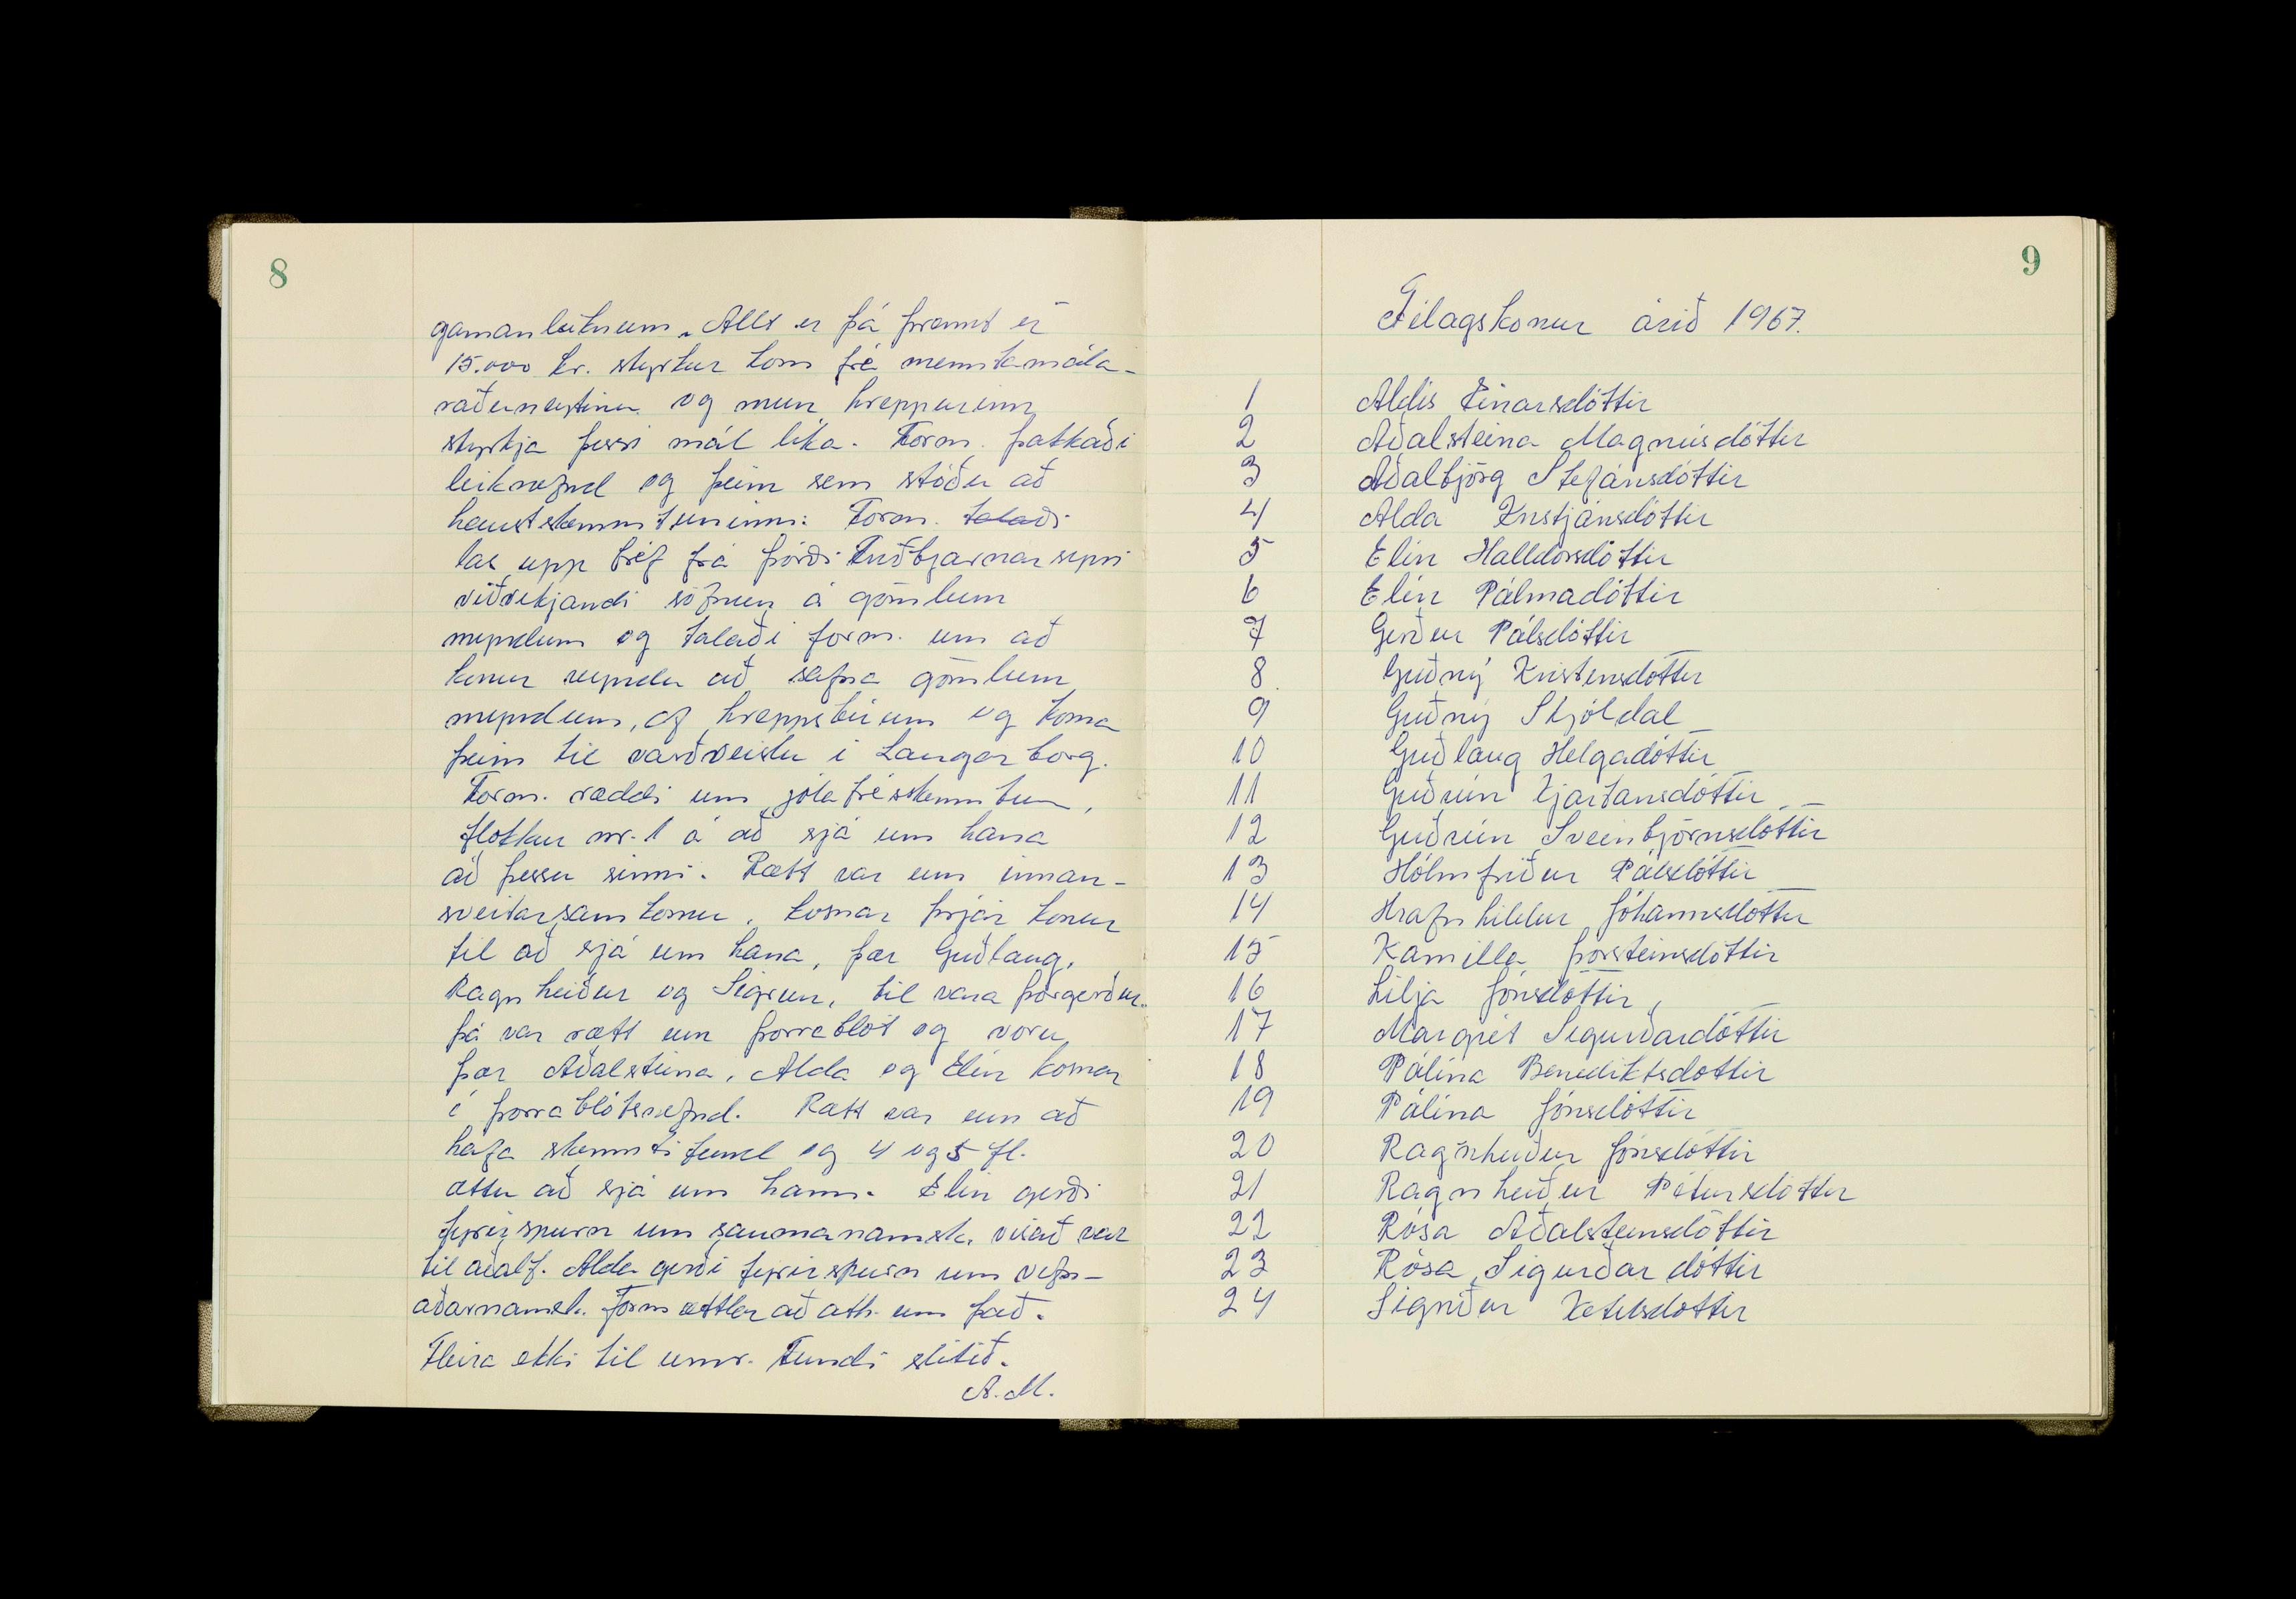 8
gamanleiknum. Allt er þá framt er
15.000 kr. styrkur kom frá menntamála-
ráðuneytinu og mun hreppurinn
styrkja þessi mál líka. Form. þakkaði
leiknefnd og þeim sem stóðu að
haustskemmtuninni. Form. talaði
las upp bréf frá Þórði Friðbjarnarsyni
viðvíkjandi söfnun á gömlum
myndum og talaði form. um að
konur reyndu að safna gömlum
myndum, af hreppsbúum og koma
þeim til varðveislu í Laugarborg.
Form. ræddi um jólatrésskemmtun,
flokkur nr. 1 á að sjá um hana
að þessu sinni. Rætt var um innan-
sveitarsamkomu, kosnar þrjár konur
til að sjá um hana, þær Guðlaug,
Ragnheiður og Sigrún, til vara Þorgerður.
Þá var rætt um þorrablót og voru
þær Aðalsteina, Alda og Elín kosnar
í þorrablótsnefnd. Rætt var um að
hafa skemmtifund og 4 og 5 fl.
ættu að sjá um hann. Elín gerði
fyrirspurn um saumanámsk. vísað var
til aðalf. Alda gerði fyrirspurn um vefn-
aðarnámsk. Form ætlar að ath. um það.
Fleira ekki til umr. Fundi slitið.
A.M.
9
Félagskonur árið 1967.
1 Aldís Einarsdóttir
2 Aðalsteina Magnúsdóttir
3 Aðalbjörg Stefánsdóttir
4 Alda Kristjánsdóttir
5 Elín Halldórsdóttir
6 Elín Pálmadóttir
7 Gerður Pálsdóttir
8 Guðný Kristinsdóttir
9 Guðný Skjóldal
10 Guðlaug Helgadóttir
11 Guðrún Kjartansdóttir
12 Guðrún Sveinbjörnsdóttir
13 Hólmfríður Pálsdóttir
14 Hrafnhildur Jóhannsdóttir
15 Kamilla Þorsteinsdóttir
16 Lilja Jónsdóttir
17 Margrét Sigurðardóttir
18 Pálína Benediktsdottir
19 Pálína Jónsdóttir
20 Ragnheiður Jónsdóttir
21 Ragnheiður Pétursdóttir
22 Rósa Aðalsteinsdóttir
23 Rósa Sigurðardóttir
24 Sigríður Ketilsdottir